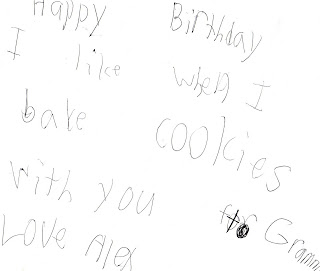 Happy Birthday
I like when I
bake cookies
with you for Gramm
Love Alex